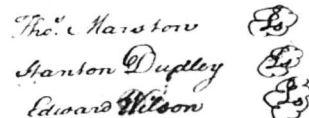 Thos. Marston LS
Stanton Dudley LS
Edward Wilson LS